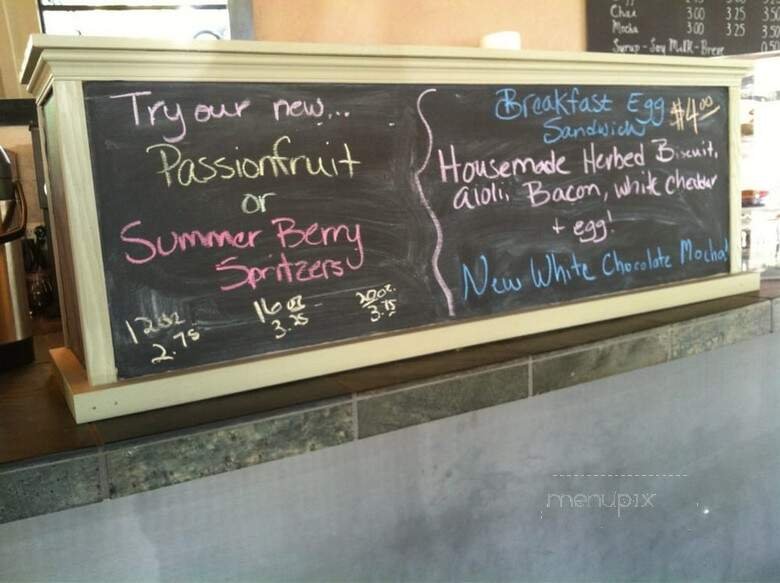 Try our new...
Passionfruit
or
Summer Berry
Spritzers
12oz
2.75
16oz
3.25
20oz.
3.75
Breakfast Egg
Sandwich $4.00
Housemade Herbed Biscuit,
aioli, Bacon, white cheddar
+ egg!
New White Chocolate Mocha!
Chai 3.00 3.25 3.50
Mocha 3.00 3.25 3.50
Syrup - Soy Milk - Breve
menupix